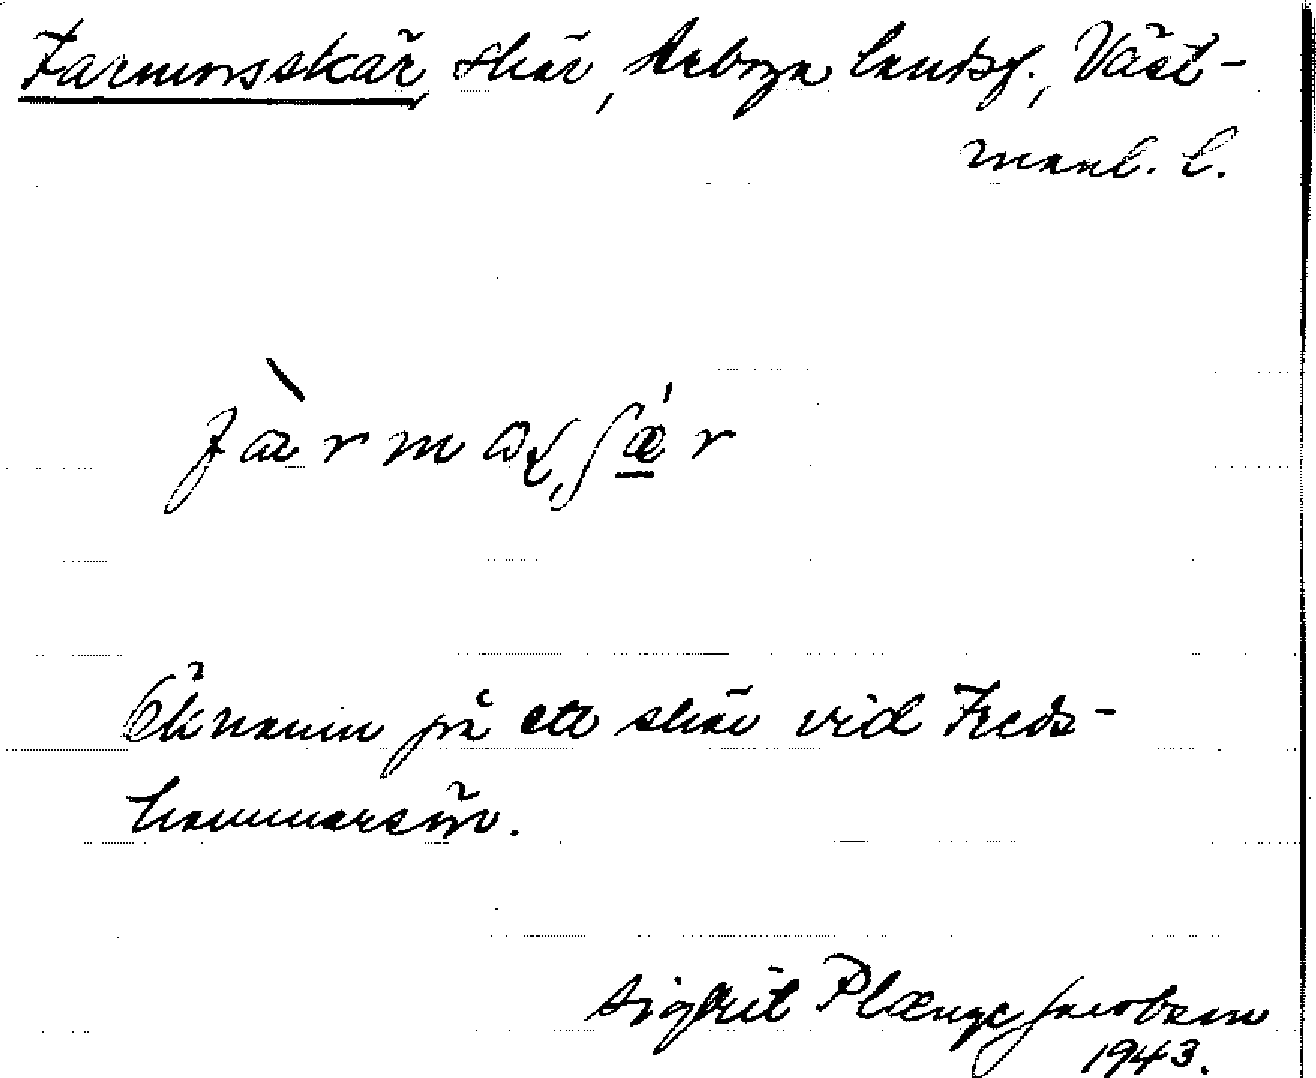 Farmorsskär, skär, Arboga landsf., Väst-
manl. l.
fàrmoʂ,ʃǽ̲r
Öknamn på ett skär vid Freds-
hammarsön.
Sigfrid Plænge Jacobson
1943.